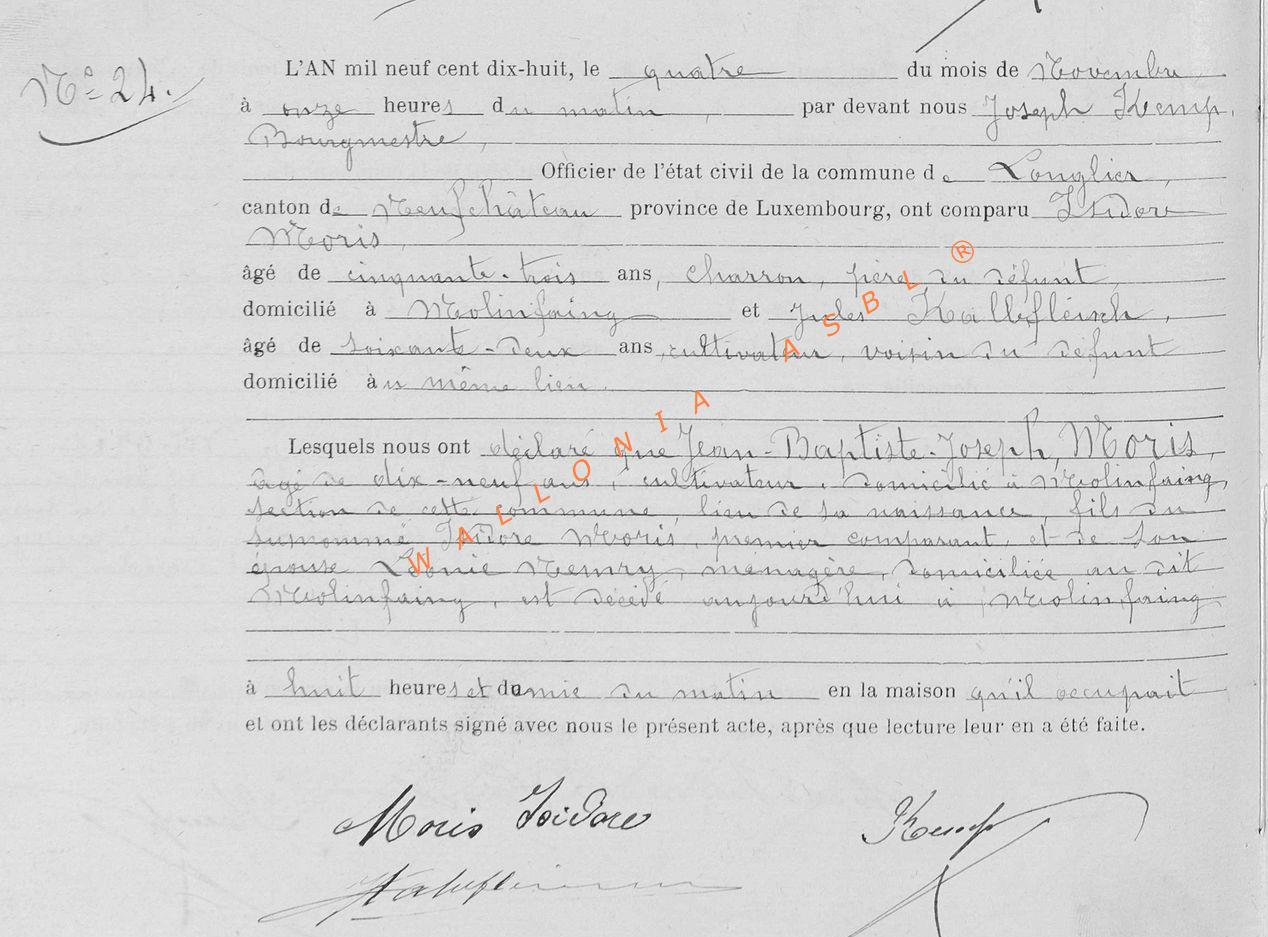 Nº 24.
L'AN mil neuf cent dix-huit, le quatre du mois de Novembre
à onze heures du matin, par devant nous Joseph Kemp,
Bourgmestre,
Officier de l'état civil de la commune de Longlier,
canton de Neufchâteau province de Luxembourg, ont comparu Isidore
Moris,
âgé de cinquante-trois ans, charron, père du défunt,
domicilié à Molinfaing et Jules
âgé de soixante-deux ans, cultivateur, voisin du défunt
domicilié au même lieu.
Lesquels nous ont déclaré que Jean-Baptiste-Joseph, Moris,
âgé de dix-neuf ans, cultivateur, domicilié à Molinfaing,
section de cette commune, lieu de sa naissance, fils du
surnommé Isidore Moris, premier comparant, et de son
épouse Léonie Nemry, ménagère, domiciliée au dit
Molinfaing, est décédé aujourd'hui à Molinfaing
à huit heures et demie du matin en la maison qu'il occupait
et ont les déclarants signé avec nous le présent acte, après que lecture leur en a été faite.
Moris Isidore
Kemp
WALLONIA ASBL ®